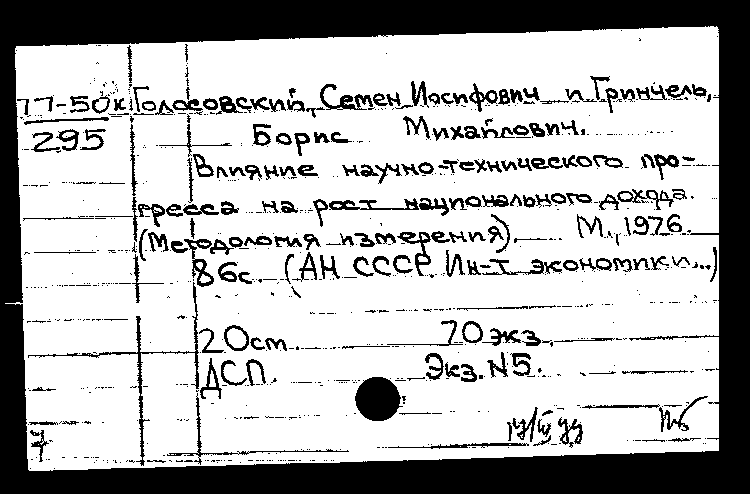 77-50к Голосовский, Семен Иосифович и Гринчель,
295 Борис Михайлович.
Влияние научно-технического про-
гресса на рост национального дохода.
(Методология измерения). М., 1976.
86с. (АН СССР. Ин-т экономики...)
20ст. 70экз.
ДСП. Экз. N5.
7